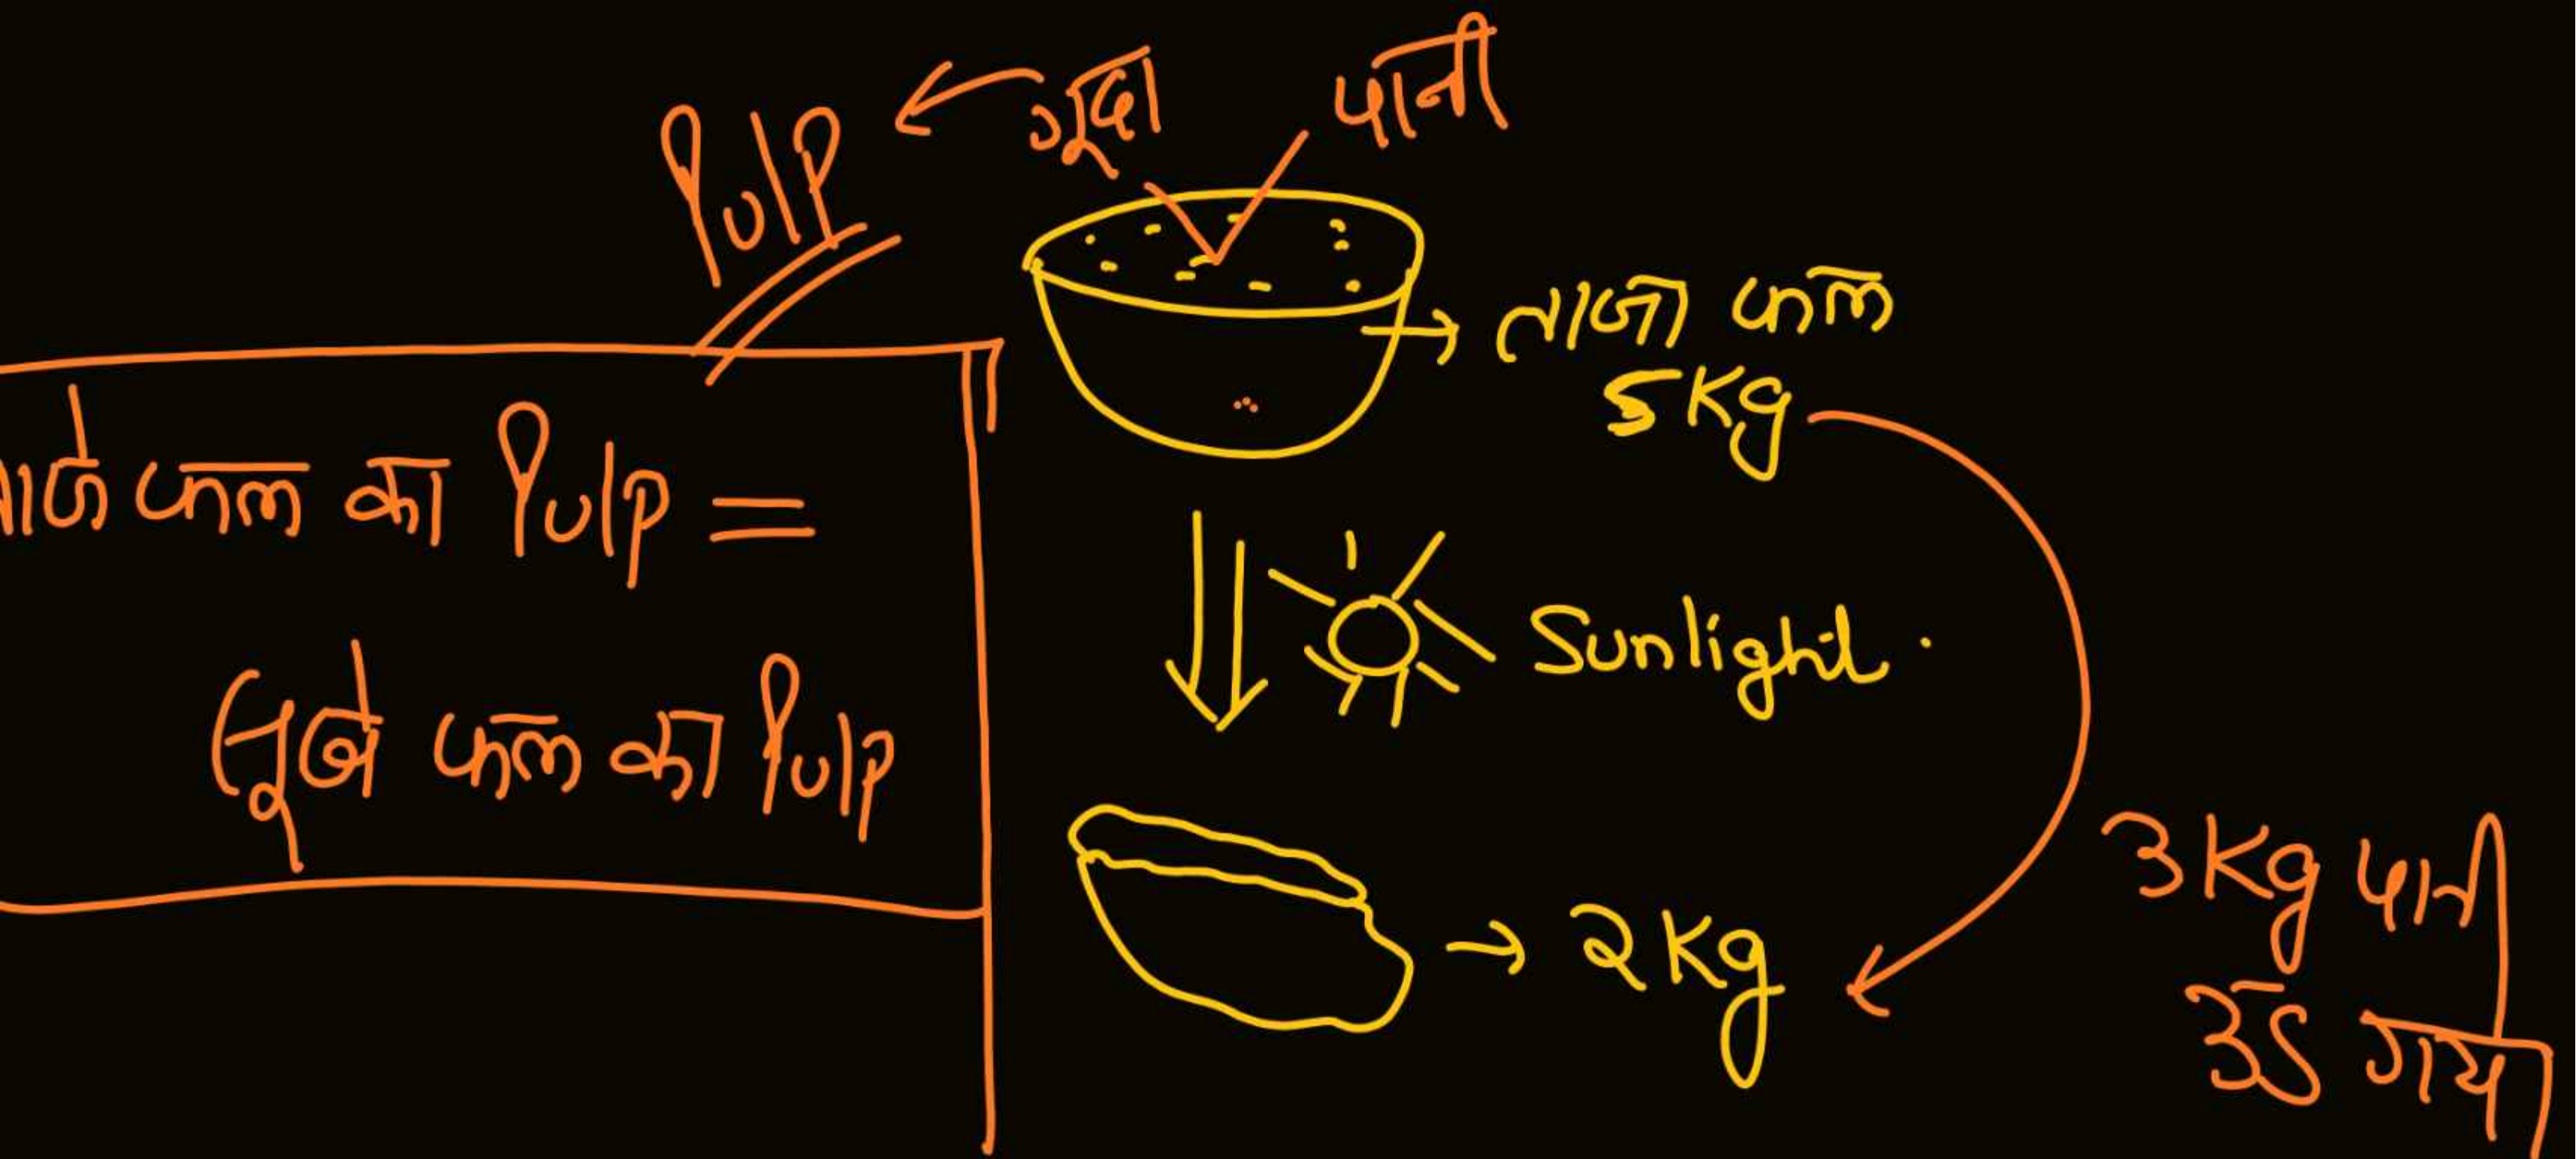 Pulp ← गूदा पानी
→ ताजा फल
5 Kg
ताजे फल का Pulp =
सूखे फल का Pulp
Sunlight.
→ 2 Kg
3 Kg पानी
उड गया